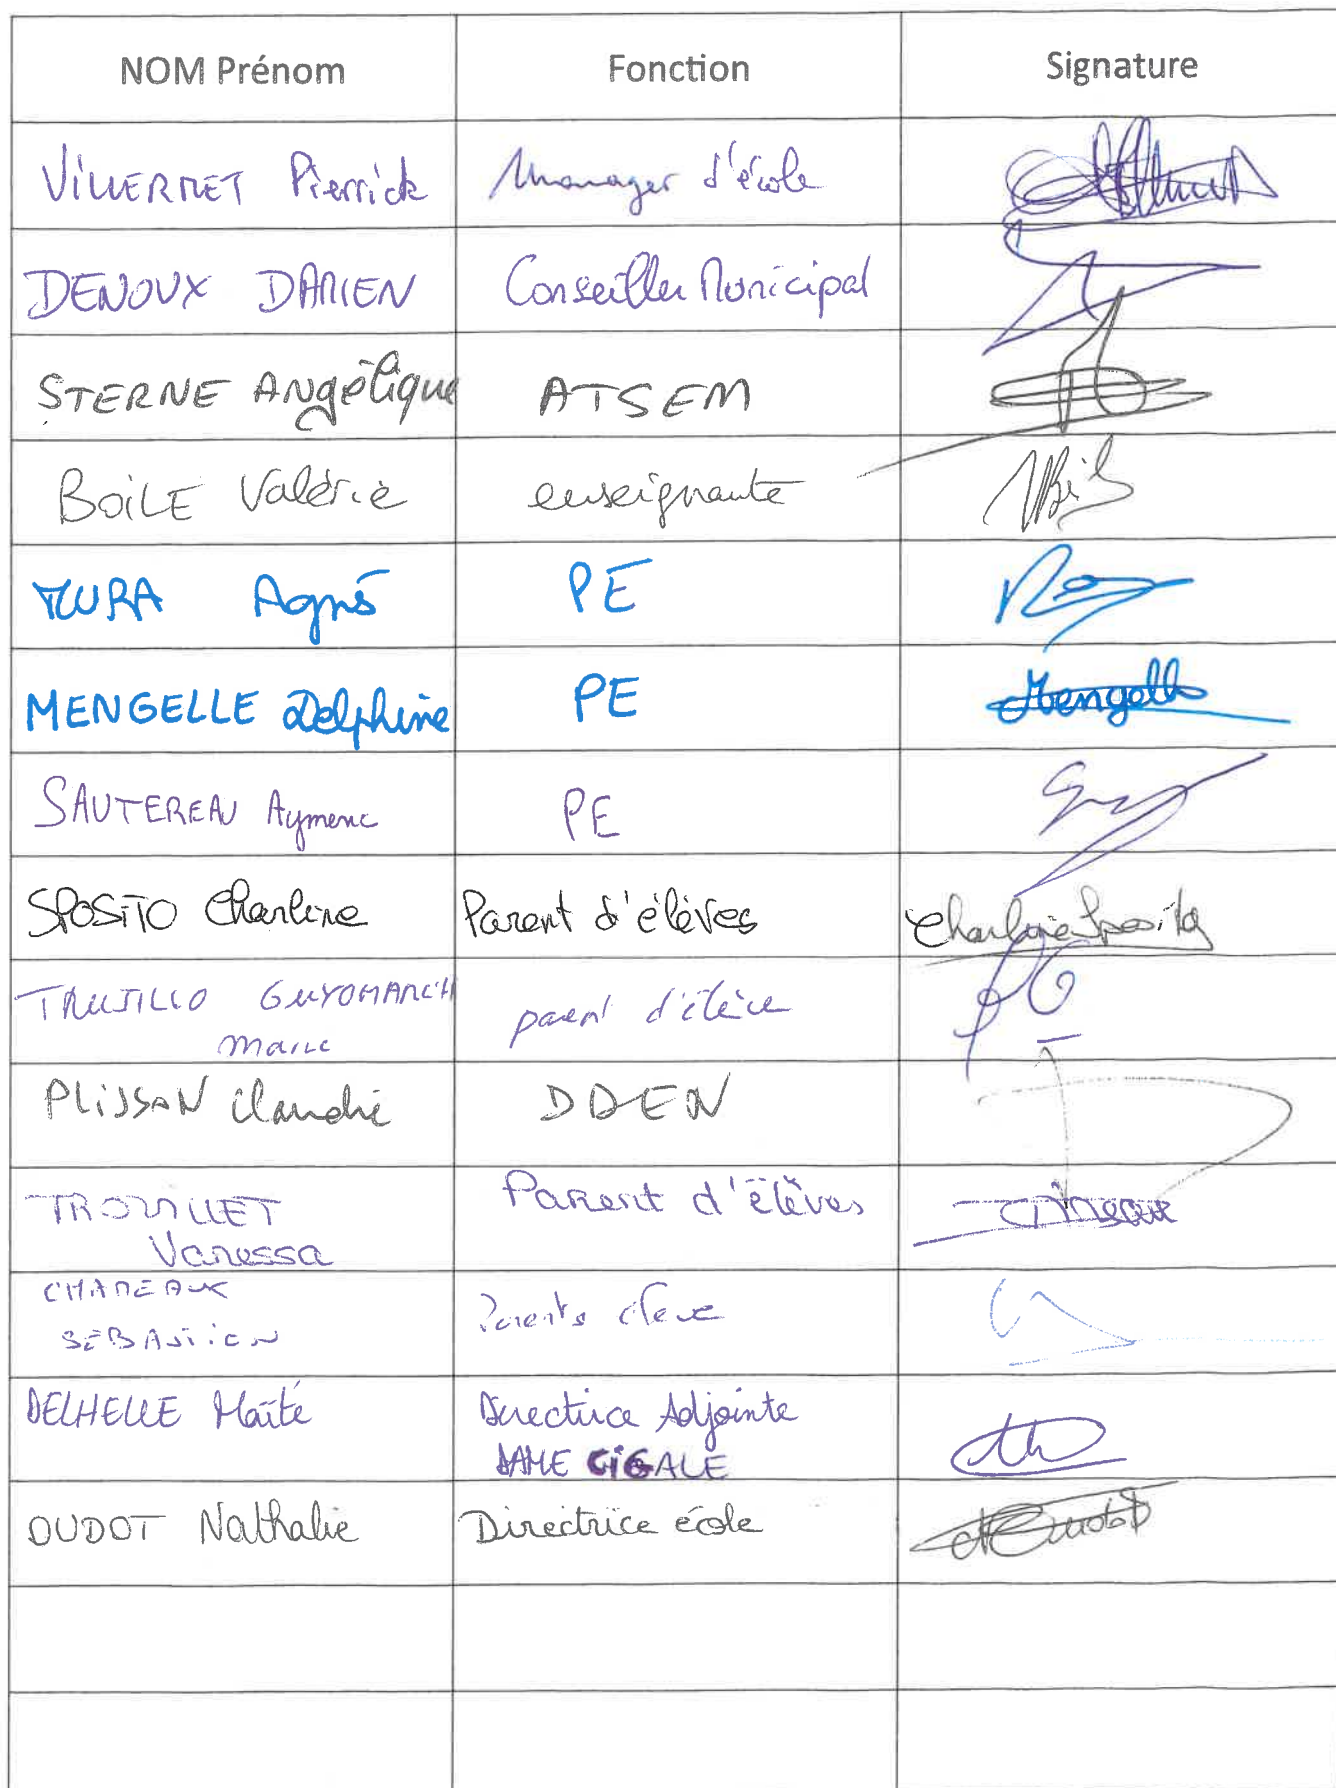 NOM Prénom Fonction Signature
VILLERMET Pierrick Manager d'école
DENOUX DAMIEN Conseiller Municipal
STERNE Angélique ATSEM
BOILE Valérie enseignante
MURA Agnès PE
MENGELLE Delphine PE Mengelle
SAUTEREAU Aymeric PE
SPOSITO Charline Parent d'élèves Charline Sposito
TRUJILLO GUYOMARCH parent d'élève
Marie
PLISSON Claudie DDEN
TROUILLET Parent d'élèves
Vanessa
CHAMEAUX Parents eleve
SÉBASTIEN
DELHELLE Maïté Directrice Adjointe
DAME CIGALE
OUDOT Nathalie Directrice école